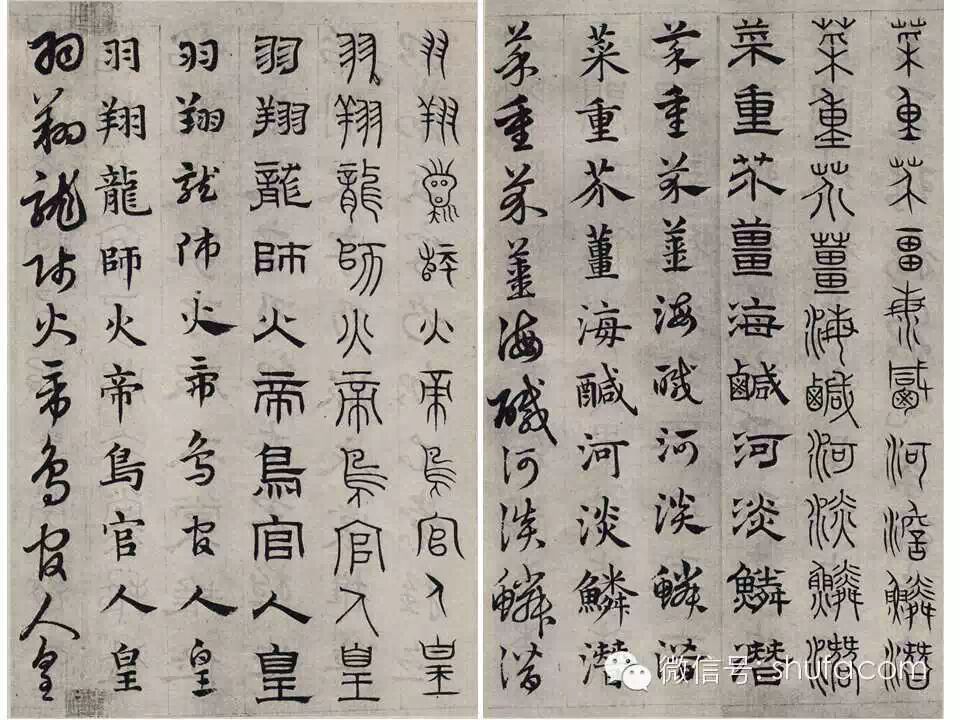 菜重芥薑海鹹河淡鱗潛
菜重芥薑海鹹河淡鱗潛
菜重芥薑海鹹河淡鱗潛
菜重芥薑海醎河淡鱗潛
菜重芥薑海醎河淡鱗潛
菜重芥薑海醎河淡鱗潛
羽翔龍師火帝鳥官人皇
羽翔龍師火帝鳥官人皇
羽翔龍師火帝鳥官人皇
羽翔龍師火帝鳥官人皇
羽翔龍師火帝鳥官人皇
羽翔龍師火帝鳥官人皇
微信号: shufacom